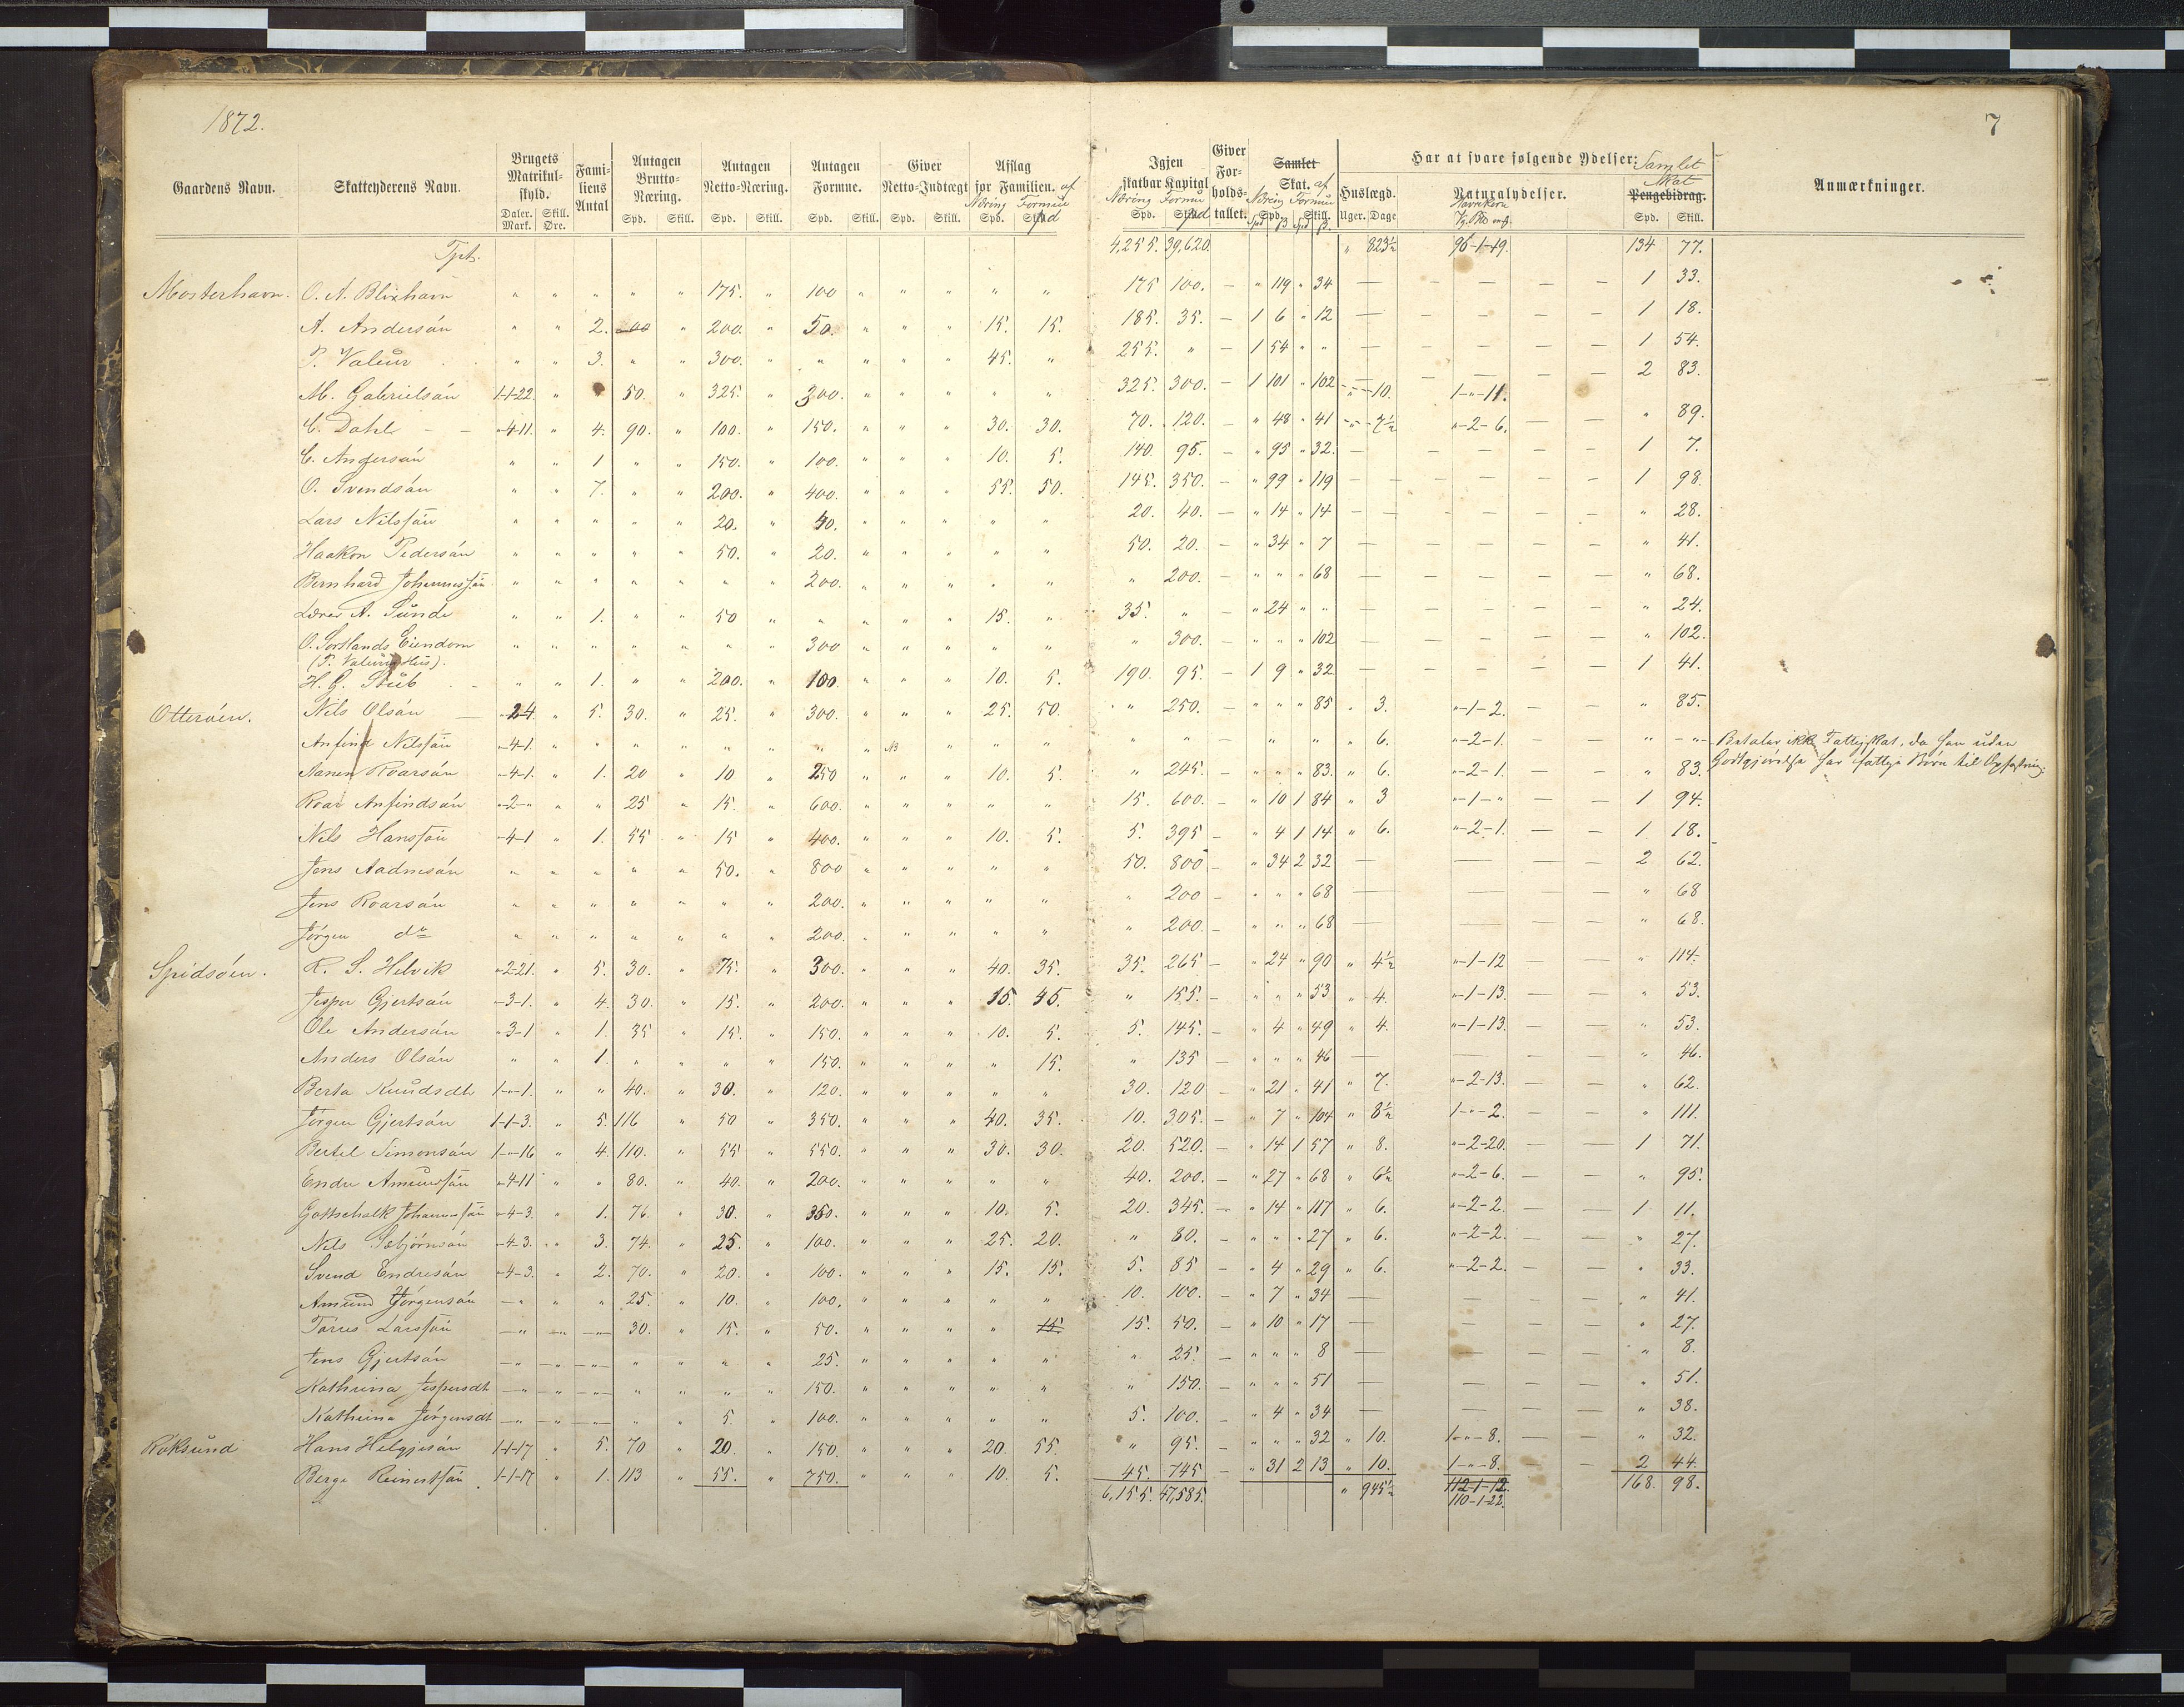 1872.
7
Gaardens Navn. Skatteyderens Navn. Brugets Matrikul-skyld. Daler. Mark. Skill. Øre. Fami-liens Antal Antagen Brutto-Næring. Spd. Skill. Antagen Netto-Næring. Spd. Skill. Antagen Formue. Spd. Skill. Giver Netto-Indtægt Spd. Skill. Afslag for Familien. af Næring Formue Spd. Igjen skatbar Kapital Næring Formue Spd. Giver For-holds-tallet. Samlet Skat. af Næring Formue Spd. Skill. Har at svare følgende Ydelser: Huslægd. Uger. Dage Naturalydelser. Havrekorn Samlet Skat Pengebidrag. Spd. Skill. Anmærkninger.
Tpt. 4,255. 39,620. " 823½ 96-1-19. 134 77.
Mosterhavn. O. A. Blixhavn " " " " " 175. " 100 " " " " " 175 100. - " 119 " 34 — 1 33.
A. Andersøn " " 2. 200 " 200. " 50. " " " 15. 15. 185. 35. - 1 6 " 12 — 1 18.
P. Valeur " " 3. " " 300. " " " " " 45. " 255. " - 1 54 " " — 1 54.
M. Gabrielsøn 1-1-22. " 50. " 325. " 300. " " " " " 325. 300. - 1 101 " 102 " 10. 1-"-11. 2 83.
C. Dahl "-4-11. " 4. 90. " 100. " 150. " " " 30. 30. 70. 120. - " 48 " 41 " 7½ "-2-6. " 89.
C. Andersøn " " 1 " " 150. " 100. " " " 10. 5. 140. 95. - " 95 " 32. — 1 7.
O. Svendsøn " " 7. " " 200. " 400. " " " 55. 50. 145. 350. - " 99 " 119 — 1 98.
Lars Nilssøn " " " " " 20. " 40. " " " " " 20. 40. - " 14 " 14 — " 28.
Haakon Pedersøn " " " " " 50. " 20. " " " " " 50. 20. - " 34 " 7 — " 41.
Bernhard Johannessøn " " " " " " " 200. " " " " " " 200. - " " " 68 — " 68.
Lærer A. Sunde " " 1. " " 50 " " " " " 15. " 35. " - " 24 " " — " 24.
O. Sortlands Eiendom " " " " " " " 300 " " " " " " 300. - " " " 102 — " 102.
(P. Valeurs Hus).
H. G. Stub " " 1. " " 200. " 100. " " " 10. 5. 190. 95. - 1 9 " 32 — 1 41.
Otterøen. Nils Olsøn "-2-4 " 5. 30. " 25. " 300. " " " 25. 50. " 250. - " " " 85 " 3. "-1-2. " 85.
Anfind Nilssøn "-4-1. " " " " " " " " NB " " " " " - " " " " " 6. "-2-1. " " Betaler ikke Fattigskat, da han uden
Godtgjørelse har fattige Børn til Opfostring.
Aanen Roarsøn "-4-1. " 1. 20 " 10 " 250 " " " 10. 5. " 245. - " " " 83. " 6. "-2-1. " 83.
Roar Anfindsøn "-2-" " " 25 " 15. " 600. " " " " " 15. 600. - " 10 1 84 " 3 "-1-" 1 94.
Nils Hanssøn "-4-1 " 1. 55 " 15 " 400. " " " 10. 5. 5. 395 - " 4 1 14 " 6. "-2-1. 1 18.
Jens Aadnesøn " " " " " 50. " 800 " " " " " 50. 800 - " 34 2 32 — 2 62.
Jens Roarsøn " " " " " " " 200. " " " " " " 200 - " " " 68 — " 68
Jørgen do " " " " " " " 200. " " " " " " 200. - " " " 68 — " 68.
Spidsøen. R. S. Helvik "-2-21. " 5. 30. " 75. " 300. " " " 40. 35. 35. 265 - " 24 " 90 " 4½ "-1-12 " 114.
Jesper Gjertsøn "-3-1. " 4. 30. " 15. " 200. " " " 15. 45. " 155. - " " " 53 " 4. "-1-13. " 53.
Ole Andersøn "-3-1 " 1. 35 " 15. " 150. " " " 10. 5. 5. 145. - " 4 " 49 " 4. "-1-13. " 53.
Anders Olsøn " " 1. " " " " 150. " " " " 15. " 135 - " " " 46 — " 46.
Berta Knudsdtr 1-"-1. " " 40. " 30. " 120. " " " " " 30. 120 - " 21 " 41 " 7. "-2-13. " 62.
Jørgen Gjertsøn 1-1-3. " 5. 116 " 50 " 350. " " " 40. 35. 10. 305. - " 7 " 104 " 8½ 1-"-2. " 111.
Bertel Simonsøn 1-"-16 " 4. 110. " 55 " 550. " " " 30. 30. 20. 520. - " 14 1 57 " 8. "-2-20. 1 71.
Endre Amundsøn "-4-11 " " 80. " 40. " 200. " " " " " 40. 200. - " 27 " 68 " 6½ "-2-6. " 95.
Gottschalk Johannessøn "-4-3. " 1. 76. " 30. " 350. " " " 10. 5. 20. 345. - " 14 " 117 " 6. "-2-2. 1 11.
Nils Sæbjørnsøn "-4-3. " 3. 74. " 25. " 100. " " " 25. 20. " 80. - " " " 27 " 6. "-2-2. " 27.
Svend Endresøn "-4-3. " 2. 70. " 20. " 100. " " " 15. 15. 5. 85 - " 4 " 29 " 6. "-2-2. " 33.
Amund Jørgensøn — " " " 25. " 10. " 100. " " " " " 10. 100. - " 7 " 34 — " 41.
Tørres Larssøn — " " " 30. " 15. " 50. " " " " 15 15. 50. - " 10 " 17 — " 27.
Jens Gjertsøn — " " " " " " " 25. " " " " " " 25. - " " " 8 — " 8.
Kathrina Jespersdt — " " " " " " " 150. " " " " " " 150. - " " " 51 — " 51.
Kathrina Jørgensdt — " " " " " 5. " 100. " " " " " 5. 100. - " 4 " 34 — " 38.
Røksund Hans Helgjesøn 1-1-17 " 5. 70 " 20. " 150. " " " 20. 55. " 95. - " " " 32 " 10. 1-"-8. " 32.
Berge Reinertsøn 1-1-17 " 1. 113 " 55. " 750. " " " 10. 5. 45. 745 - " 31 2 13 " 10. 1-"-8. 2 44.
6,155. 47,585. " 945½ 112-1-12. 168. 98.
110-1-22.